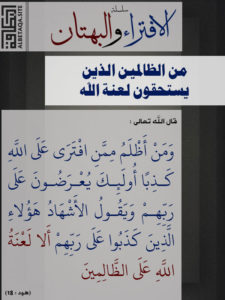 سلسلة
الافتراء والبهتان
البطاقة
ALBETAQA-SITE
من الظالمين الذين
يستحقون لعنة الله
قال الله تعالى :
وَمَنْ أَظْلَمُ مِمَّنِ افْتَرَىٰ عَلَى اللَّهِ
كَذِبًا أُولَٰئِكَ يُعْرَضُونَ عَلَىٰ
رَبِّهِمْ وَيَقُولُ الْأَشْهَادُ هَٰؤُلَاءِ
الَّذِينَ كَذَبُوا عَلَىٰ رَبِّهِمْ أَلَا لَعْنَةُ
اللَّهِ عَلَى الظَّالِمِينَ
(هود : 18)